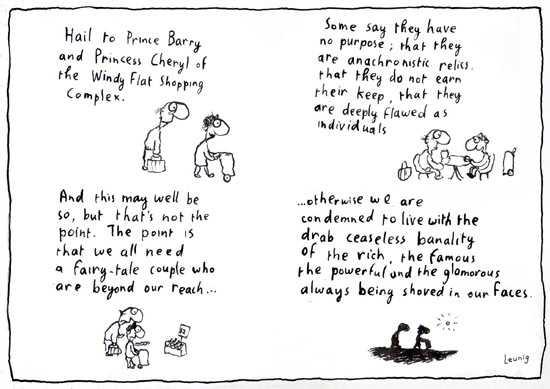 Hail to Prince Barry
and Princess Cheryl of
the Windy Flat Shopping
Complex.
Some say they have
no purpose; that they
are anachronistic relics.
that they do not earn
their keep, that they
are deeply flawed as
individuals
And this may well be
so, but that's not the
point. The point is
that we all need
a fairy-tale couple who
are beyond our reach...
...otherwise we are
condemned to live with the
drab ceaseless banality
of the rich, the famous
the powerful and the glamorous
always being shoved in our faces.
Leunig